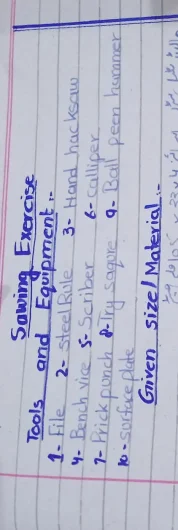 Sawing Exercise
Tools and Equipment :-
1- File 2- Steel Rule 3- Hand hacksaw
4- Bench vice 5- Scriber 6- calliper
7- Prick punch 8- Try sqaure 9- Ball peen hammer
10- surface plate
Given size/Material :-